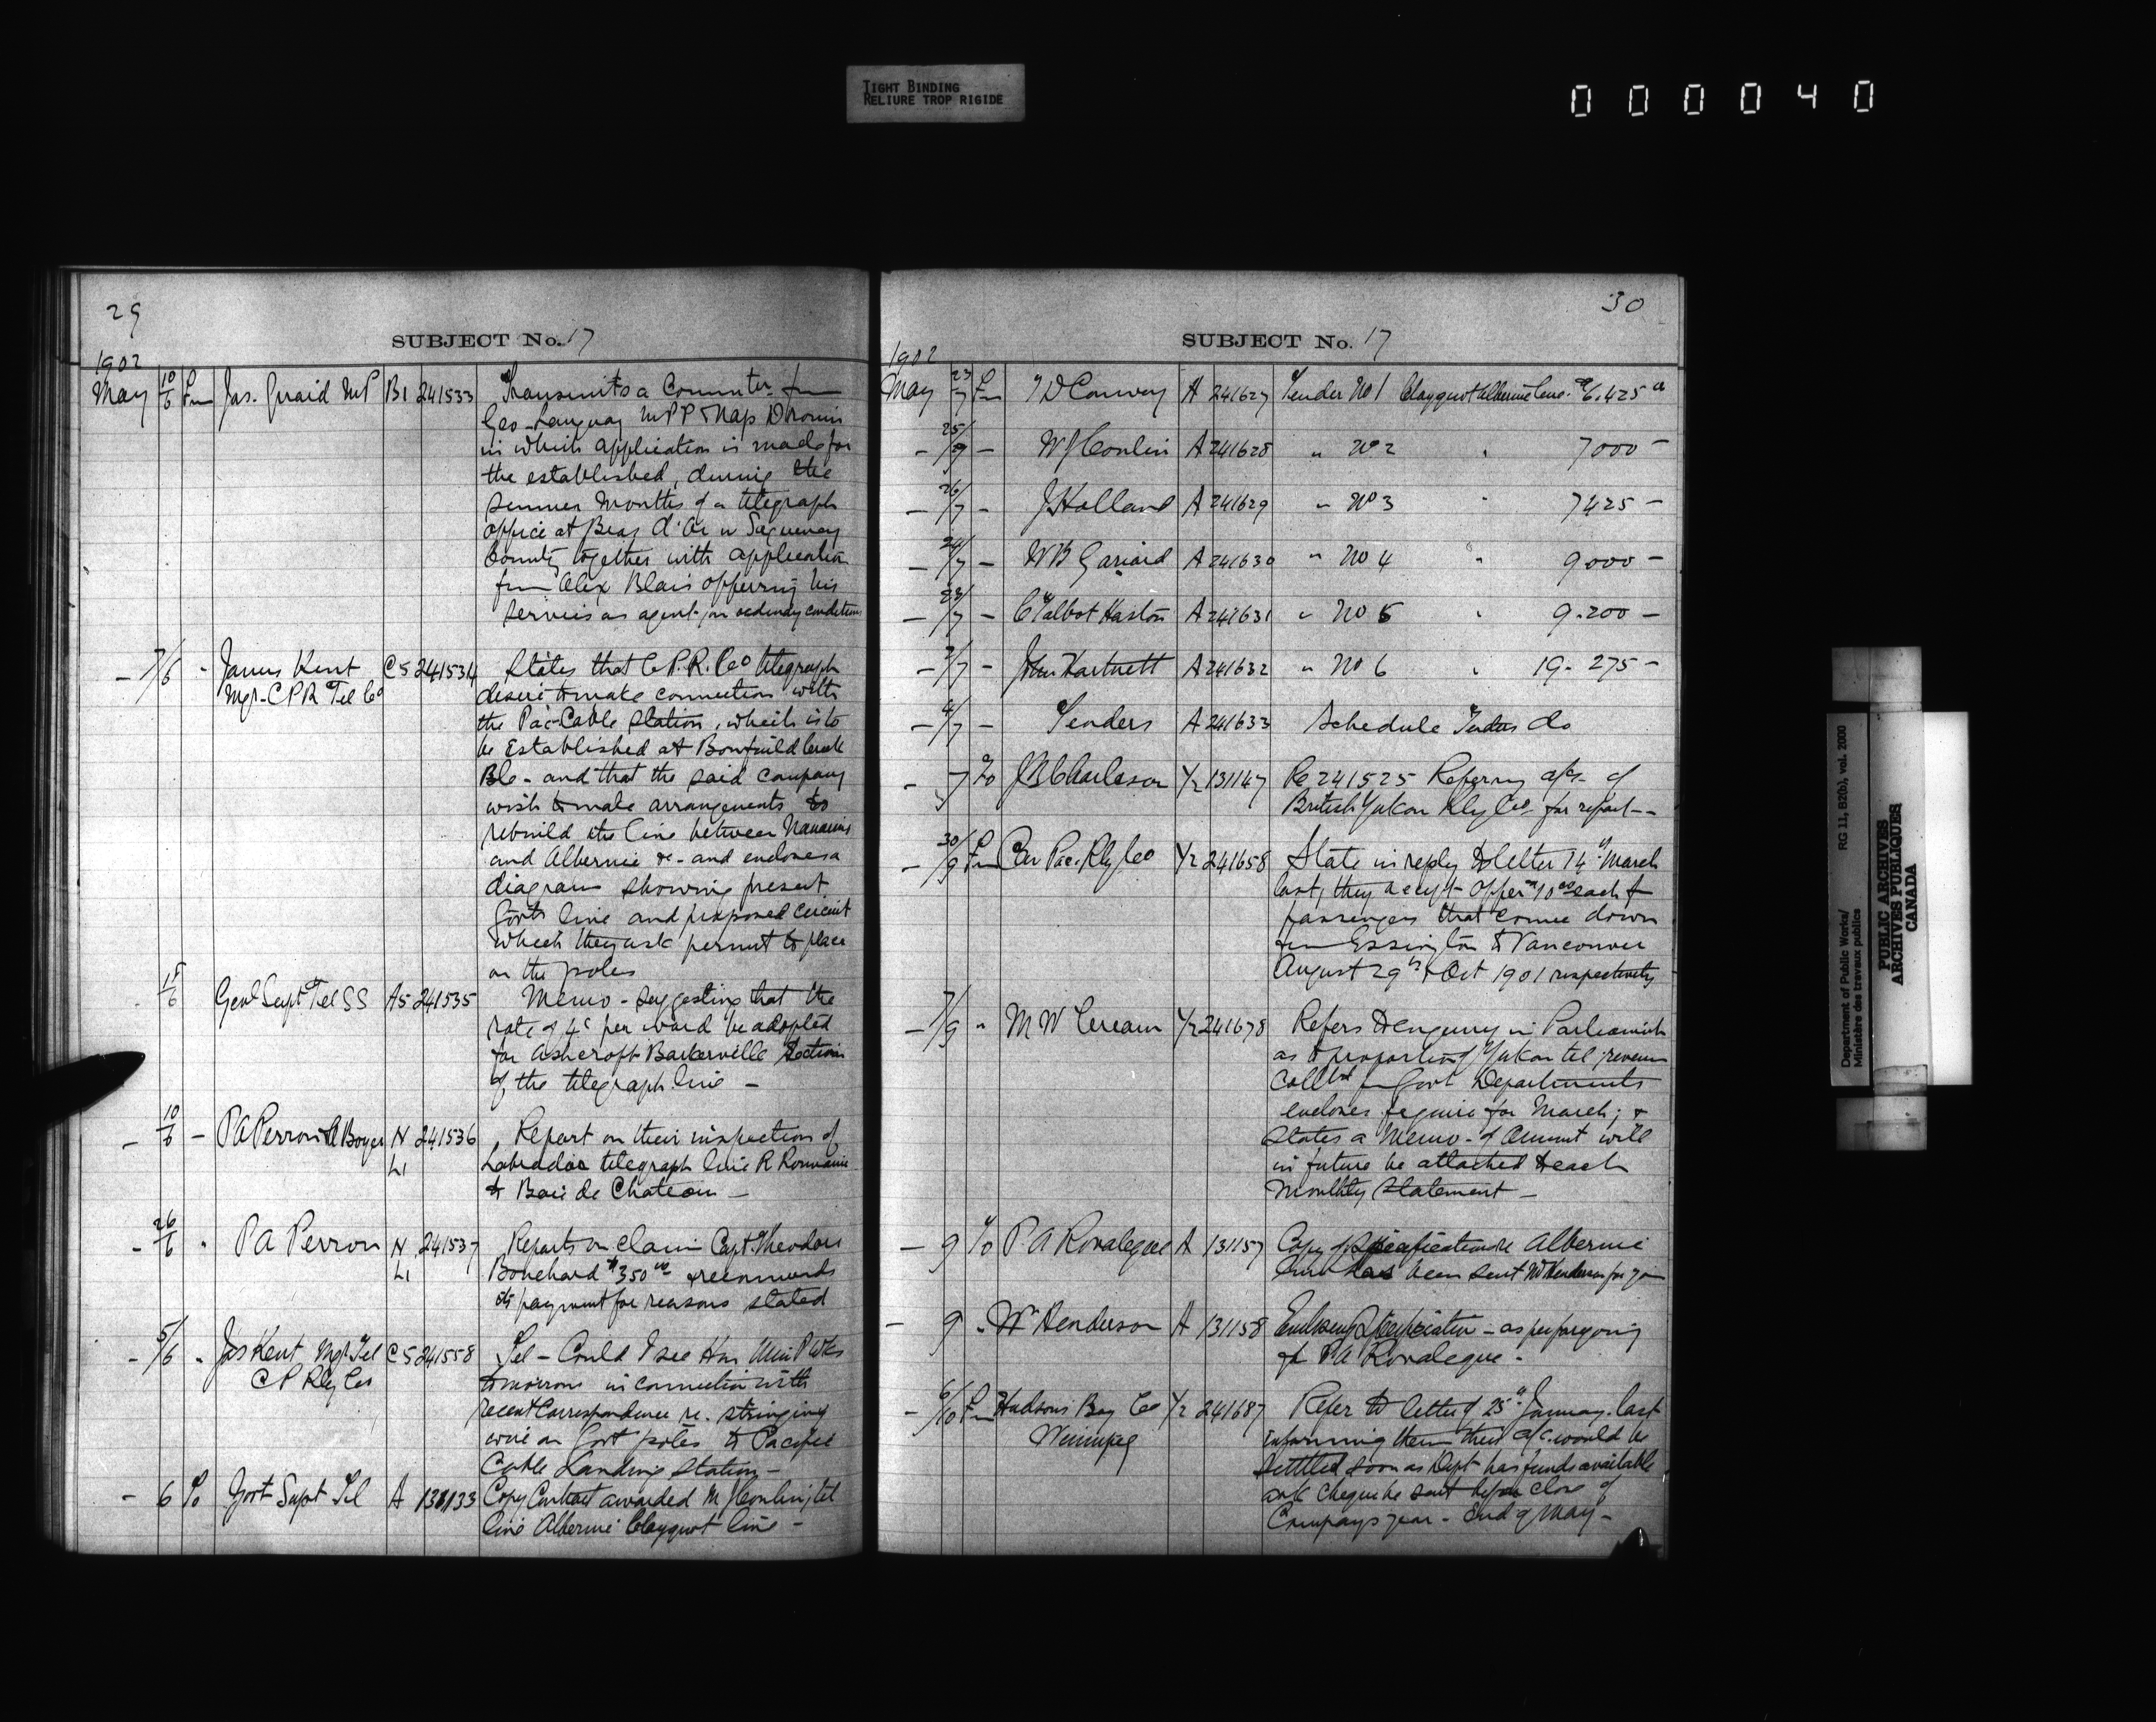 TIGHT BINDING
RELIURE TROP RIGIDE
000040
29
SUBJECT No. 17
1902
May 10/6 Fm Jas. Girard MP B1 241533 Transmits a Commtn. from
Geo. Tanguay MPP & Nap Drouin
in which application is made for
the established, during the
summer months of a telegraph
office at in Saguenay
County together with application
from Alex Blais offering his
services as agent on ordinary conditions
7/6 " James Kent C5 241534 States that C.P.R. Co telegraph
Mgr- CPR Tel Co desire to make connection with
the Pac-Cable Station, which is to
be Established at Creek
B.C. - and that the said company
wish to make arrangements to
rebuild the line between Nanaimo
and Alberni &c - and encloses a
diagram showing present
Govt line and proposed circuit
which they ask permit to place
on the poles
15/6 Genl Supt Tel SS A5 241535 Memo - suggesting that the
rate of 4c per word be adopted
for Ashcroft Barkerville Section
of the telegraph line -
10/6 - PA Perron & Boyer N 241536 Report on their inspection of
L1 Labrador telegraph line R Romaine
to Baie de Chateau -
26/6 " PA Perron N 241537 Reports on claim Capt. Theodore
L1 Bouchard $350.00 & recommends
its payment for reasons stated
5/6 " Jas Kent Mgr Tel C5 241558 Tel - Could I see Hon Min P Wks
C P Rly Co tomorrow in connection with
recent Correspondence re. stringing
wire on Govt poles to Pacific
Cable Landing Station -
- 6 To Govt Supt Tel A 131133 Copy Contract awarded W J Conlin, tel
line Alberni Clayquot line -
30
SUBJECT No. 17
1902
May 23/7 Fm J D Conway A 241627 Tender No 1 Clayquot Alberni Line. $6.425 00
- 25/7 - W J Conlin A 241628 " No 2 " 7000 -
- 26/7 - J Holland A 241629 " No 3 " 7425 -
- 24/7 - W B Garrard A 241630 " No 4 " 9000 -
- 23/7 - C Talbot Haston A 241631 " No 5 " 9.200 -
- 2/7 - John Hartnett A 241632 " No 6 " 19.275 -
- 4/7 - Tenders A 241633 Schedule Tenders do
- 7 To J B Charleson Y2 131147 Re 241525 Referring a/cs. of
British Yukon Rly Co. for report --
- 30/9 Fm Can Pac. Rly Co Y2 241658 State in reply to letter 14th March
last, they accept offer $10.00 each for
passengers that come down
from Essington to Vancouver
August 29th & Oct 1901 respectively
- 7/9 " M W Crean Y2 241678 Refers to enquiry in Parliament
as to proportion of Yukon tel. revenue
from Govt Departments
encloses figures for March; &
states a Memo - of amount will
in future be attached to each
Monthly Statement -
- 9 To P A A 131157 Copy of Specification re Alberni
line has been sent W Henderson for you
- 9 " Wm Henderson A 131158 Enclosing Specification - as per foregoing
P A
- 6/10 Fm Hudsons Bay Co Y2 241687 Refer to letter of 25th January last
Winnipeg informing them their a/c. would be
settled soon as Dept has funds available
ask cheque be sent before close of
Companys year - End of May -
Department of Public Works/
Ministère des travaux publics
RG 11, B2(b), vol. 2000
PUBLIC ARCHIVES
ARCHIVES PUBLIQUES
CANADA